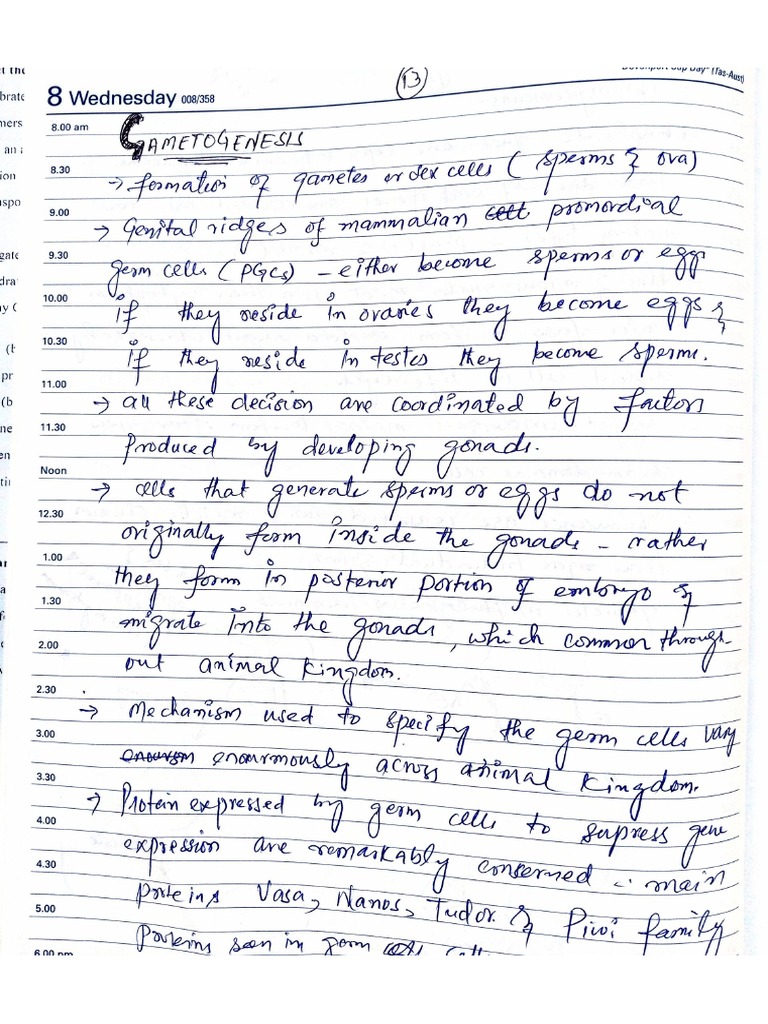 13
8 Wednesday 008/358
8.00 am
GAMETOGENESIS
8.30
→ formation of gametes or sex cells ( sperms & ova)
9.00
→ Genital ridges of mammalian promordial
9.30
germ cells ( PGCs) – either become sperms or egg
10.00
if they reside in ovaries they become eggs &
10.30
if they reside in testes they become sperms.
11.00
→ all these decision are coordinated by factors
11.30
produced by developing gonads.
Noon
→ cells that generate sperms or eggs do not
12.30
originally form inside the gonads – rather
1.00
they form in posterior portion of embryo &
1.30
migrate into the gonads, which common through-
2.00
out animal kingdom.
2.30
→ Mechanism used to specify the germ cells vary
3.00
enourmously across animal kingdom.
3.30
→ Protein expressed by germ cells to supress gene
4.00
expression are remarkably conserved main
4.30
proteins Vasa, Nanos, Tudor & Piwi family
5.00
proteins seen in germ
6.00 pm